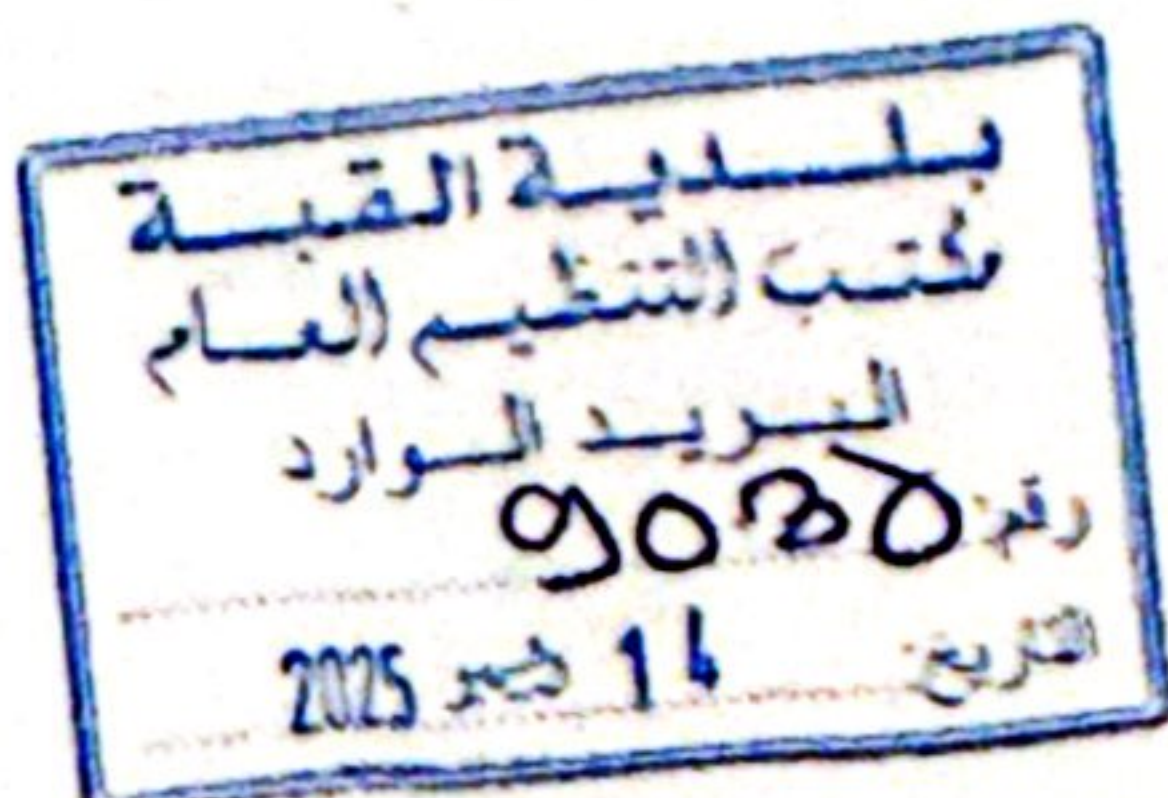 بلدية القبة
مكتب التنظيم العام
البريد الوارد
رقم:
التاريخ: 14 ديسمبر 2025